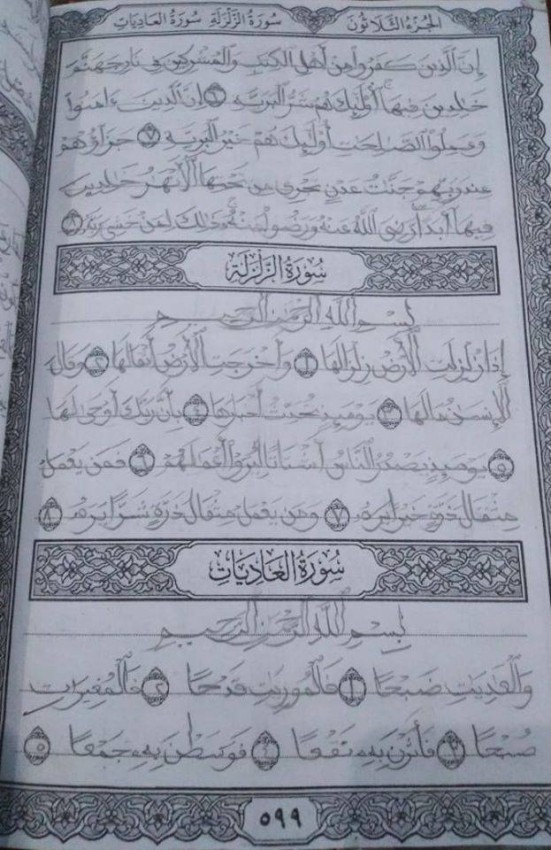 الجزء الثلاثون سورة الزلزلة سورة العاديات
إن الذين كفروا من أهل الكتب والمشركين في نار جهنم
خلدين فيها أولئك هم شر البرية ٦ إن الذين ءامنوا
وعملوا الصلحت أولئك هم خير البرية ٧ جزاؤهم
عند ربهم جنت عدن تجري من تحتها الأنهر خلدين
فيها أبدا رضي الله عنهم ورضوا عنه ذلك لمن خشي ربه ٨
سورة الزلزلة
بسم الله الرحمن الرحيم
إذا زلزلت الأرض زلزالها ١ وأخرجت الأرض أثقالها ٢ وقال
الإنسن مالها ٣ يومئذ تحدث أخبارها ٤ بأن ربك أوحى لها
٥ يومئذ يصدر الناس أشتاتا ليروا أعملهم ٦ فمن يعمل
مثقال ذرة خيرا يره ٧ ومن يعمل مثقال ذرة شرا يره ٨
سورة العاديات
بسم الله الرحمن الرحيم
والعديت ضبحا ١ فالموريت قدحا ٢ فالمغيرات
صبحا ٣ فأثرن به نقعا ٤ فوسطن به جمعا ٥
٥٩٩